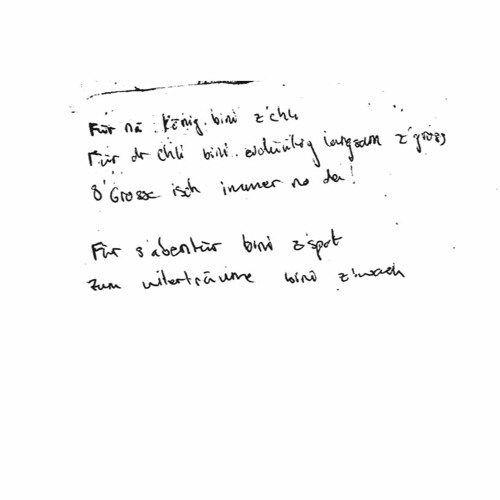 Für nä König bini z'chli
Für dr chli bini eidüütig langsam z'gross
S'Grosse isch immer no da!
Für s'abentür bini z'spat
Zum witerträume bini z'wach